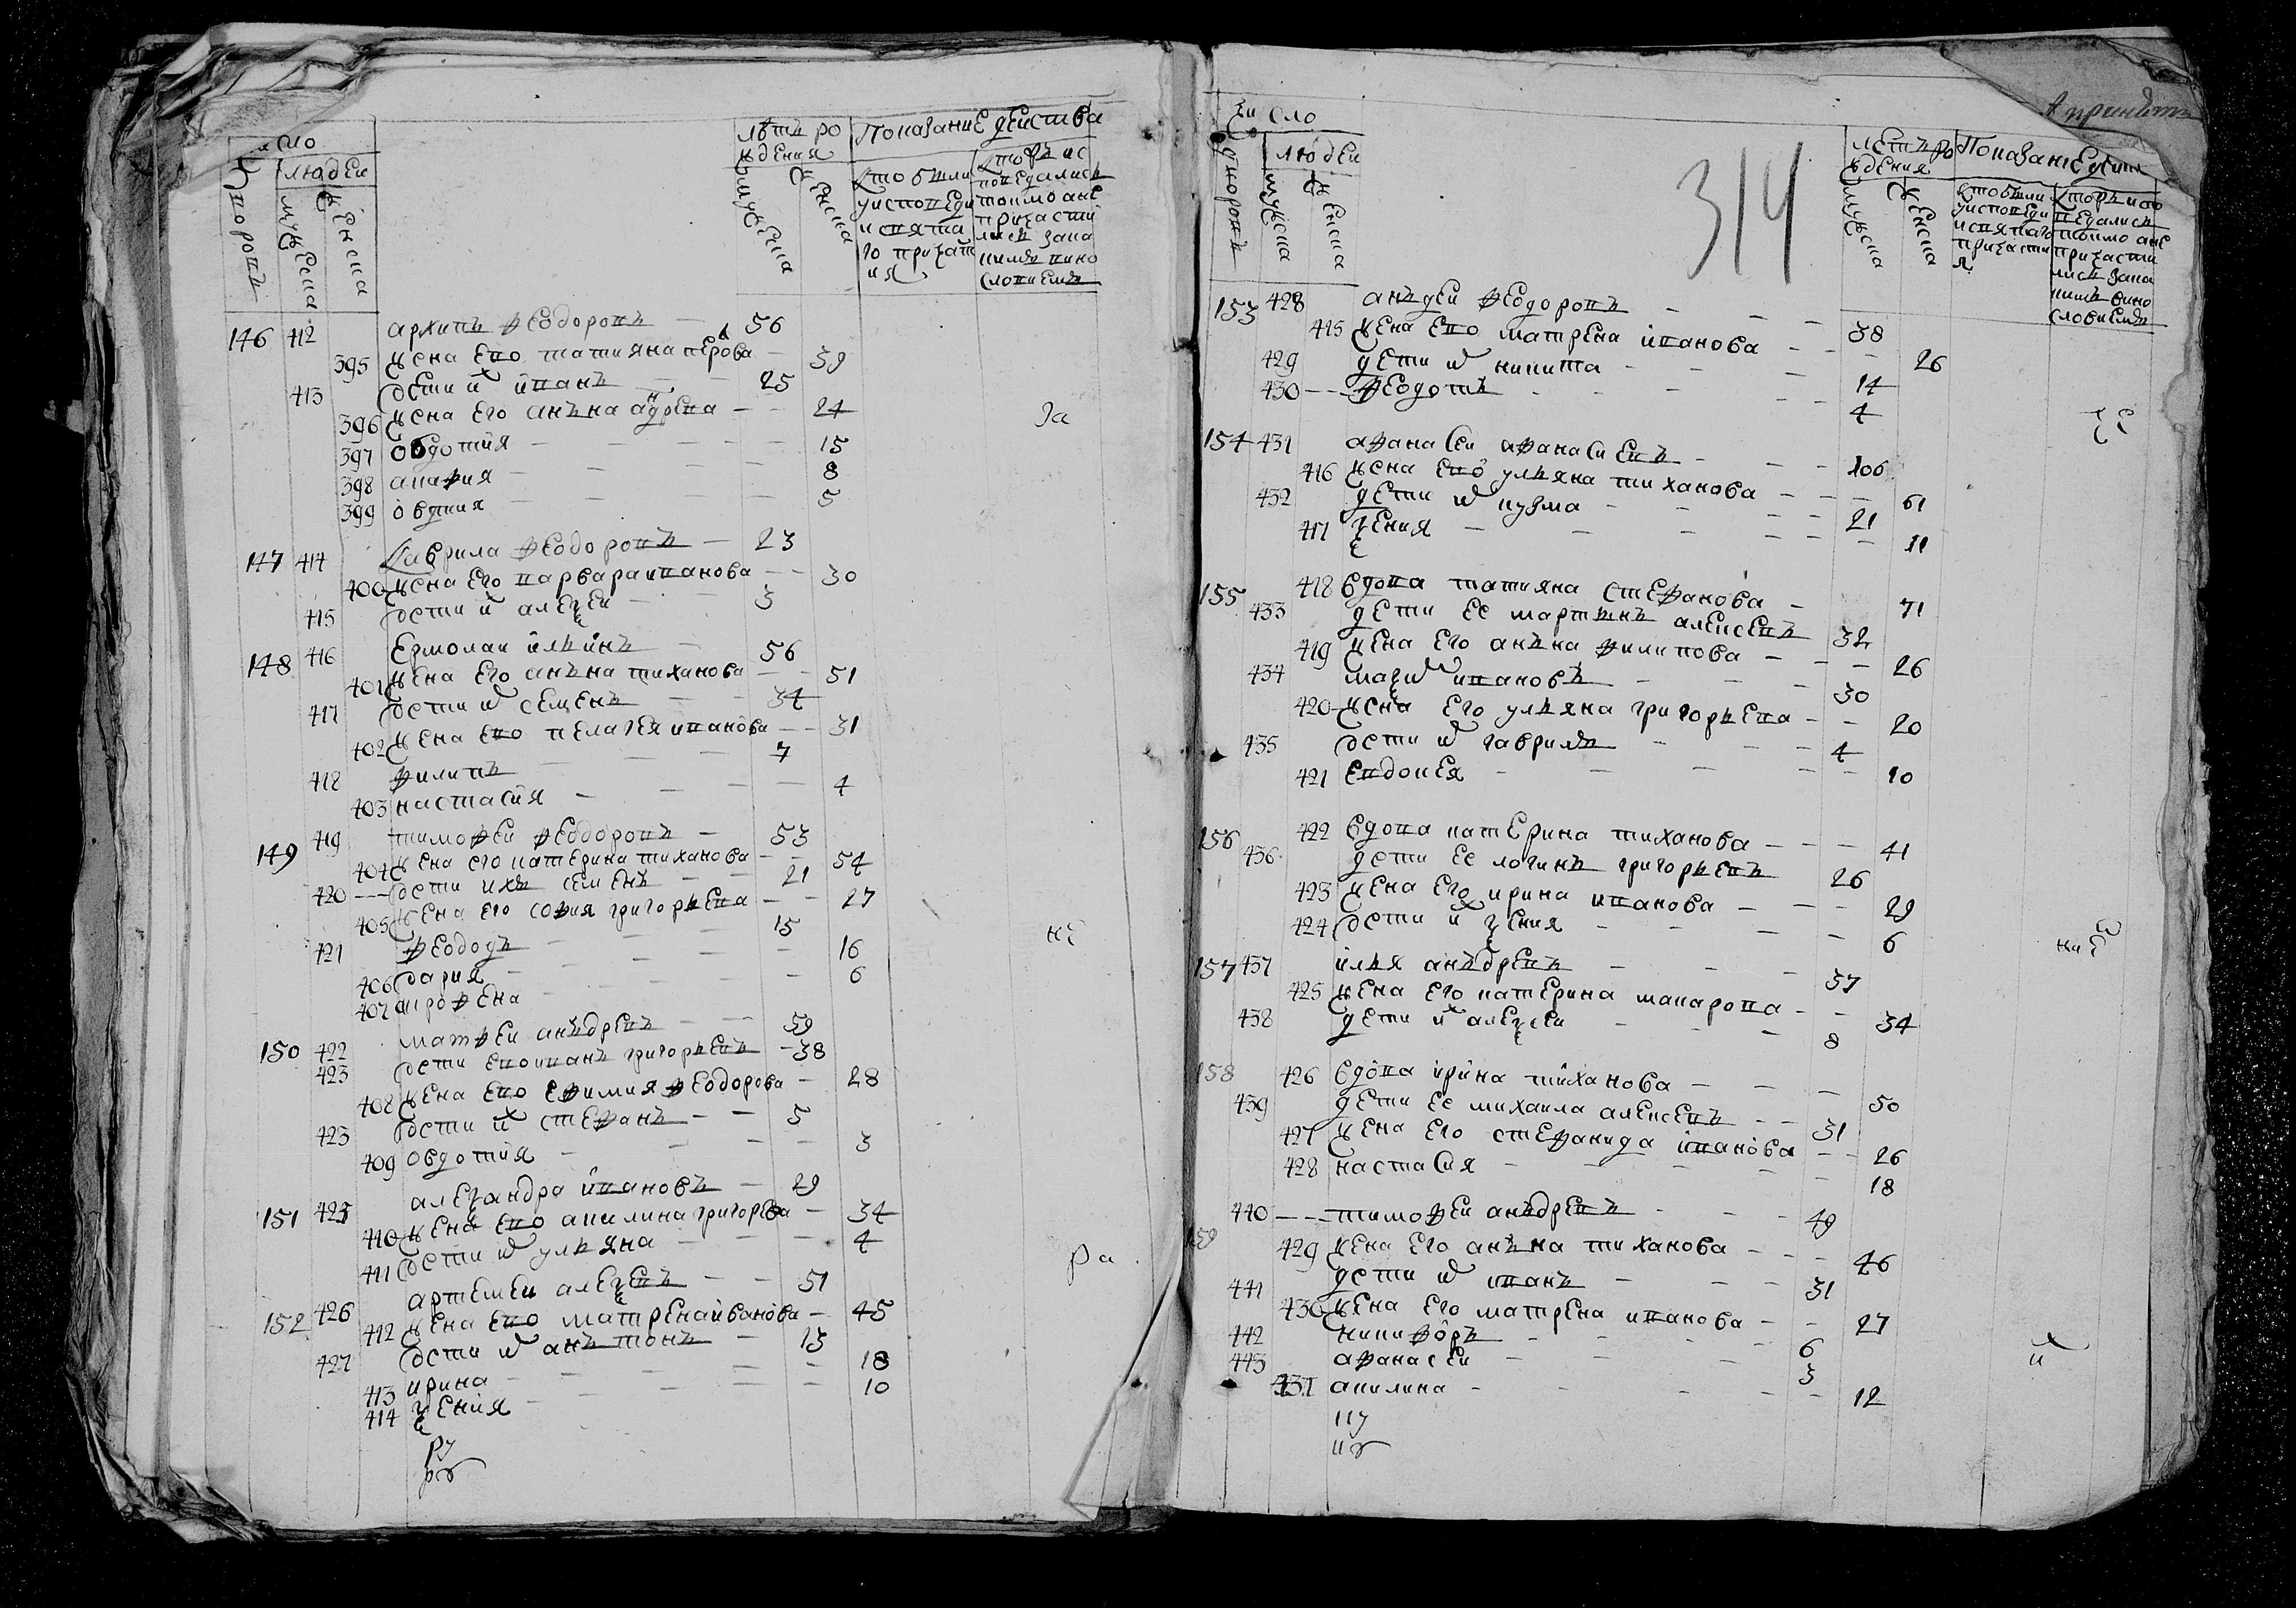 число
людеи
дворовъ
мужеска
женска
лѣтъ ро
жденія
мужеска
женска
Показание деиства
кто были
у исповеди
и святa
го причаст
ия
кторъ ис
поведалис
токмо а не
причасти
лись за ка
кимъ вино
словиемъ
146 412 архипъ Ѳеодоровъ — 56
395 жена ево татияна перова — 39
413 дети их иванъ — 25
396 жена его анъна адрева — 24
397 овдотия — 15
398 — 8
399 — 5
147 414 гаврила Ѳеодоровъ — 23
400 жена его варвара иванова — 30
415 дети их алеѯеи — 3
148 416 ермолаи ильинъ — 56
401 жена его анъна тиханова — 51
417 дети их семенъ — 34
402 жена ево пелагея иванова — 31
418 Филипъ — 7
403 настасия — 4
149 419 тимоѲеи Ѳеодоровъ — 53
404 жена его катерина тиханова — 54
420 дети ихъ семенъ — 21
405 жена его соѲия григорьева — 27
421 Ѳеодоръ — 15
406 дария — 16
407 — 6
150 422 матѲеи анъдревъ — 59
423 дети ево иванъ григорьевъ — 38
408 жена ево еѲимия Ѳеодорова — 28
423 дети их стеѲанъ — 5
409 овдотия — 3
151 425 алеѯандра ивановъ — 29
410 жена ево акилина григорева — 34
411 дети их ульяна — 4
152 426 артемеи алеѯевъ — 51
412 жена ево матрена иванова — 45
427 дети их анътонъ — 13
413 ирина — 18
414 ѯения — 10
ру
рѳ
314
число
людеи
дворовъ
мужска
женска
летъ ро
ждения
мужска
женска
Показание деист
кто были
у исповеди
и святаго
причасти
я
кторъ испо
ведались
токмо а не
причасти
лись за ка
кимъ вино
словиемъ
153 428 анъдеи Ѳеодоровъ — 38
415 жена ево матрена иванова — 26
429 дети их никита — 14
430 Ѳеодотъ — 4
154 431 аѲанасеи аѲанасиевъ — 106
416 жена ево ульяна тиханова — 61
432 дети их кузма — 21
417 ѯения — 11
155 418 вдова татияна стеѲанова — 71
433 дети ее мартинъ алексевъ — 32
419 жена его анъна Филипова — 26
434 маѯим ивановъ — 30
420 жена его ульяна григорьева — 20
435 дети их гаврилъ — 4
421 евдокея — 10
156 422 вдова катерина тиханова — 41
436 дети ее логинъ григорьевъ — 26
423 жена его ирина иванова — 29
424 дети их ѯения — 6
157 437 илья анъдревъ — 37
425 жена его катерина макарова — 34
438 дети их алеѯеи — 8
158 426 вдова ирина тиханова — 50
439 дети ее михаила алексевъ — 31
427 жена его стеѲанида иванова — 26
428 настасия — 18
159 440 тимоѲеи анъдревъ — 49
429 жена его анъна тиханова — 46
441 дети их иванъ — 31
430 жена его матрена иванова — 27
442 никиѲоръ — 6
443 аѲанасеи — 3
431 акилина — 12